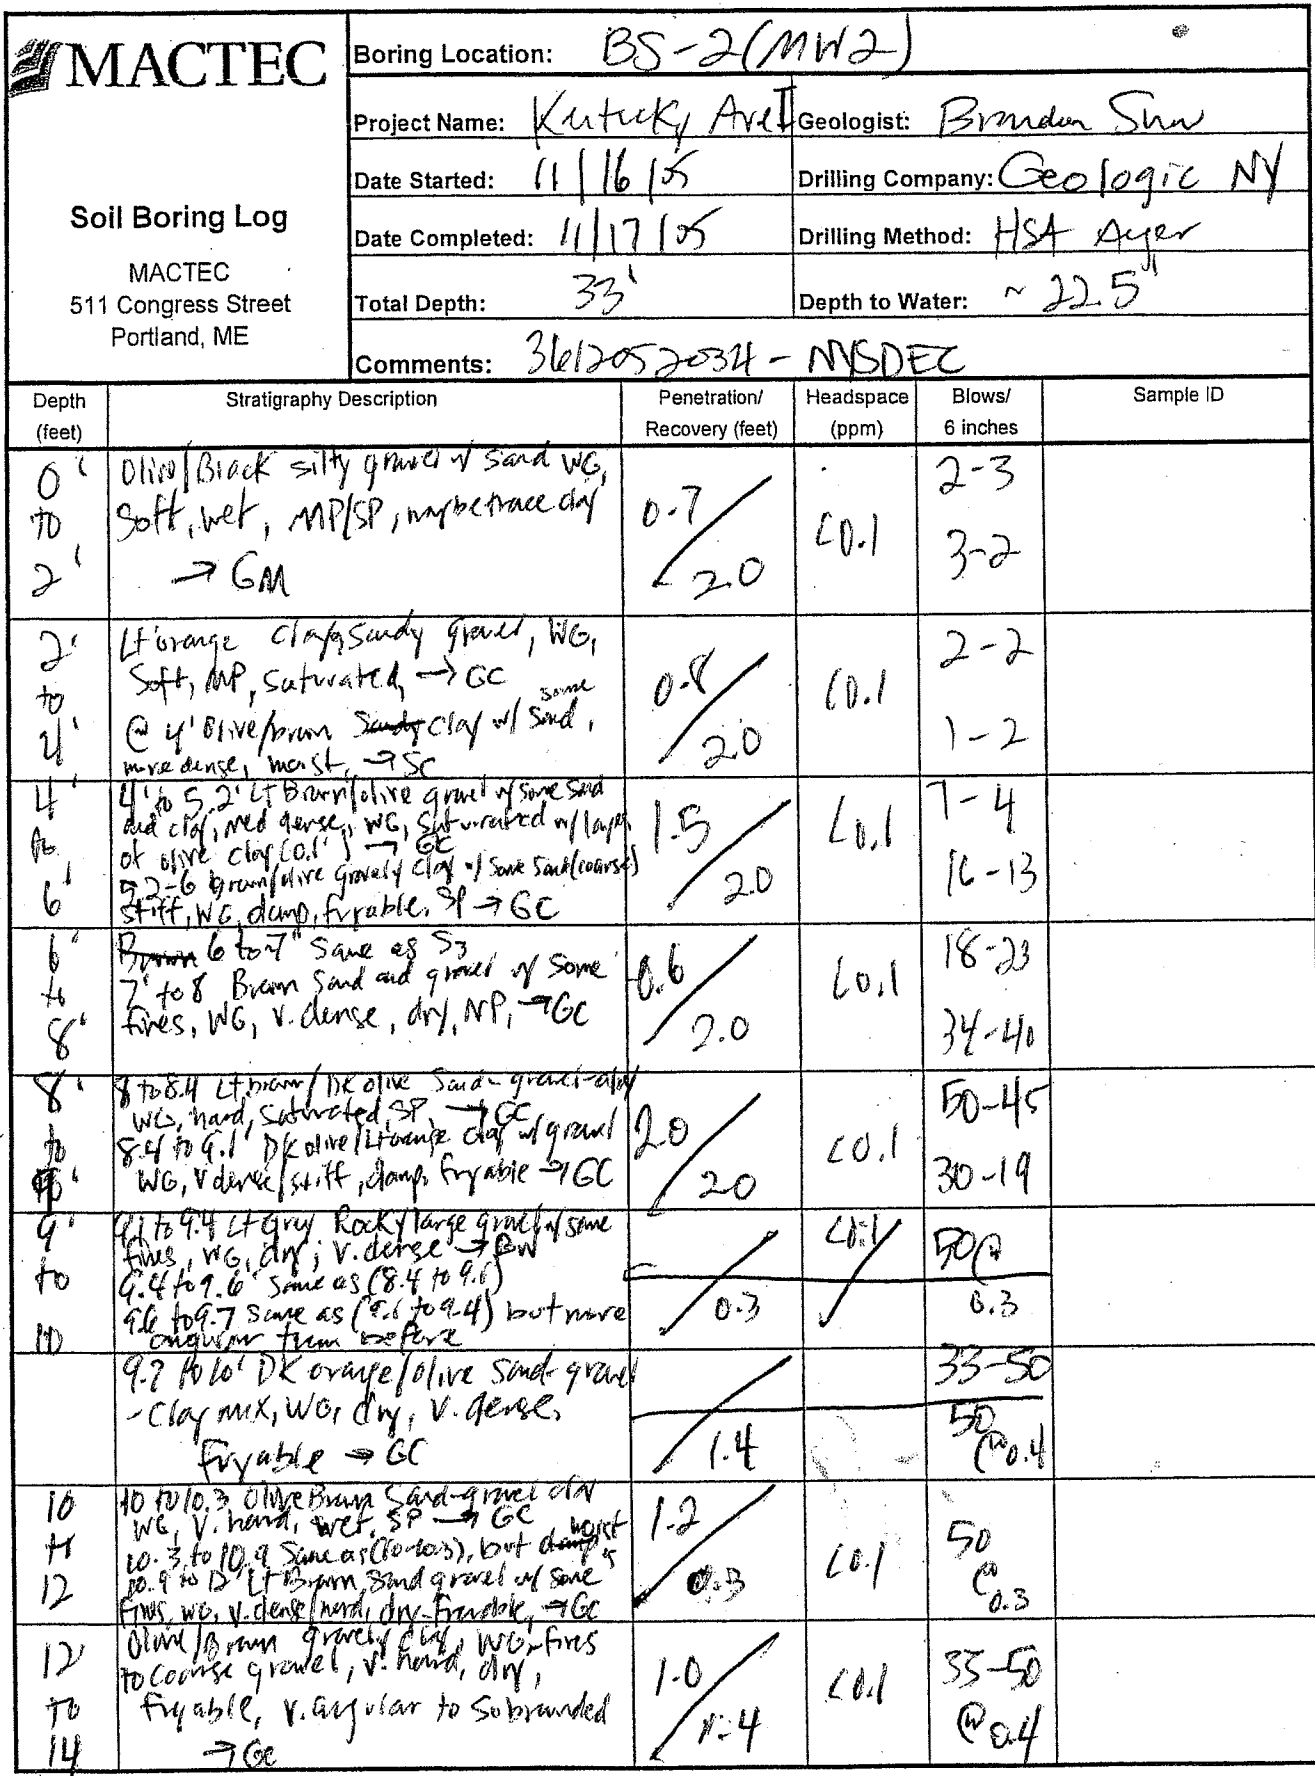 MACTEC
Soil Boring Log
MACTEC
511 Congress Street
Portland, ME
Boring Location: BS-2(MW2)
Project Name: Kentucky Ave II
Geologist: Brandon Shaw
Date Started: 11/16/05
Drilling Company: Geologic NY
Date Completed: 11/17/05
Drilling Method: HSA Auger
Total Depth: 33'
Depth to Water: ~22.5'
Comments: 3612052034 - NYSDEC
Depth (feet)
Stratigraphy Description
Penetration/ Recovery (feet)
Headspace (ppm)
Blows/ 6 inches
Sample ID
0' to 2'
Olive/Black silty gravel w/ sand WG,
Soft, wet, MP/SP, maybe trace clay
→ GM
0.7 / 2.0
<0.1
2-3
3-2
2' to 4'
Lt orange clayey sandy gravel, WG,
Soft, MP, saturated, → GC
@ 4' Olive/brown Sandy clay w/ some sand,
more dense, moist, → SC
0.8 / 2.0
<0.1
2-2
1-2
4' to 6'
4' to 5.2' Lt Brown/olive gravel w/ some sand
and clay, med dense, WG, saturated w/ layer
of olive clay (0.1') → GC
5.2-6 brown/olive gravely clay w/ some sand (coarse)
stiff, WG, damp, fryable, SP → GC
1.5 / 2.0
<0.1
7-4
16-13
6' to 8'
Brown 6 to 7" Same as S3
7' to 8 Brown Sand and gravel w/ some
fines, WG, v. dense, dry, NP, → GC
0.6 / 2.0
<0.1
18-23
34-40
8' to
8 to 8.4 Lt brown/DK olive Sand-gravel-clay
WG, hard, saturated, SP, → GC
8.4 to 9.1' DK olive/Lt orange clay w/ gravel
WG, v dense/stiff, damp, fryable → GC
2.0 / 2.0
<0.1
50-45
30-19
9' to 10
9.1 to 9.4 Lt Gray Rocky/large gravel w/ some
fines, WG, dry, v. dense → GW
9.4 to 9.6' Same as (8.4 to 9.1)
9.6 to 9.7 Same as (9.1 to 9.4) but more
angular than before
0.3
<0.1
50@
0.3
9.7 to 10' DK orange/olive Sand-gravel
-Clay mix, WG, dry, v. dense,
fryable → GC
1.4
33-50
50
@0.4
10 to 12
10 to 10.3 Olive Brown Sand-gravel clay
WG, v. hard, wet, SP → GC
10.3 to 10.9 Same as (10-10.3), but damp moist
10.9 to 12' Lt Brown, sand gravel w/ some
fines, WG, v. dense/hard, dry-friable, → GC
1.2 / 0.3
<0.1
50
@
0.3
12' to 14
Olive/Brown gravely clay, WG, fines
to coarse gravel, v. hard, dry,
fryable, v. angular to subrounded
→ GC
1.0 / 1.4
<0.1
35-50
@ 0.4